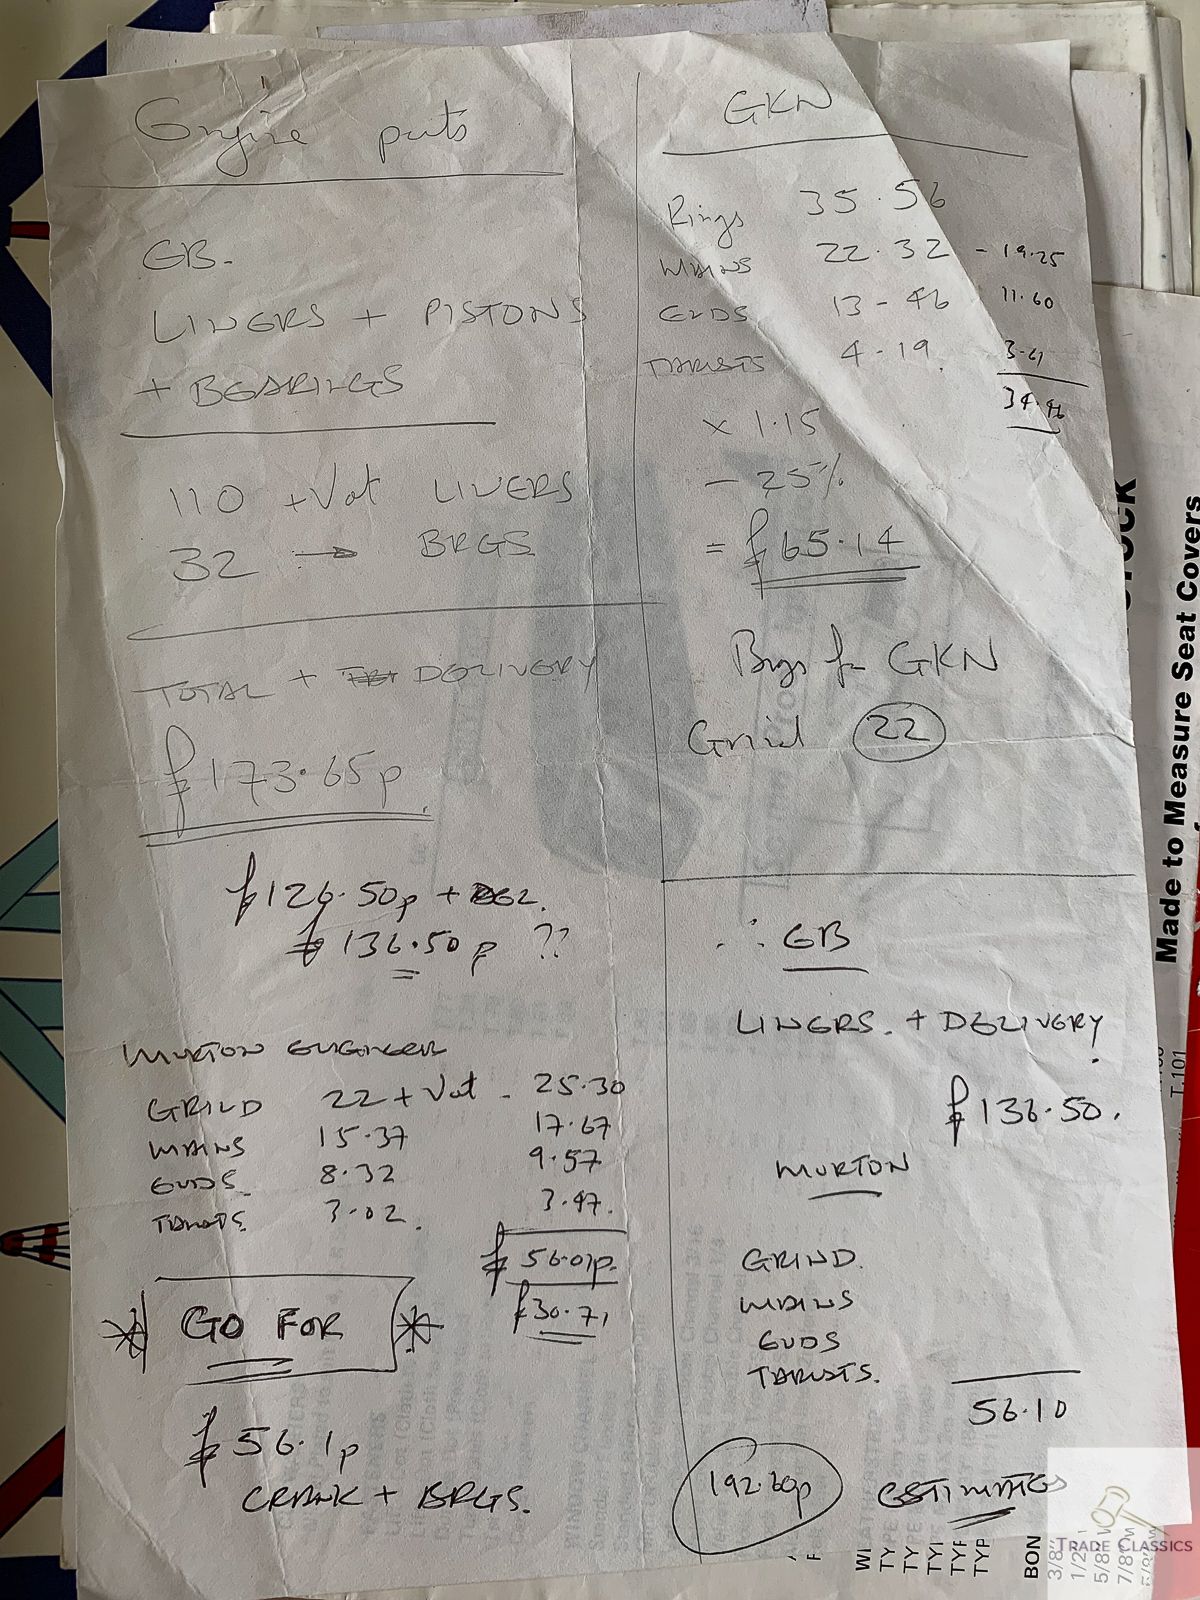 Engine parts
GB.
LINERS + PISTONS
+ BEARINGS
110 + Vat LINERS
32 → BRGS
TOTAL + DELIVERY
£173.65p.
£126.50p + DEL.
£136.50p ??
MURTON ENGINEER
GRIND 22 + Vat - 25.30
MAINS 15.37 17.67
ENDS 8.32 9.57
THRUSTS. 3.02. 3.47.
£56.01p.
£30.71
* GO FOR *
£56.1p
CRANK + BRGS.
GKN
Rings 35.56
MAINS 22.32 - 19.25
ENDS 13-46 11.60
THRUSTS 4-19. 3.61
34.46
x 1.15
- 25%
= £65.14
Brgs for GKN
Grind 22
∴ GB
LINERS. + DELIVERY
£136.50.
MURTON
GRIND.
MAINS
ENDS
THRUSTS.
56.10
192.60p ESTIMATES
Made to Measure Seat Covers
T.101
BON
3/8"
1/2"
5/8"
7/8"
TRADE CLASSICS